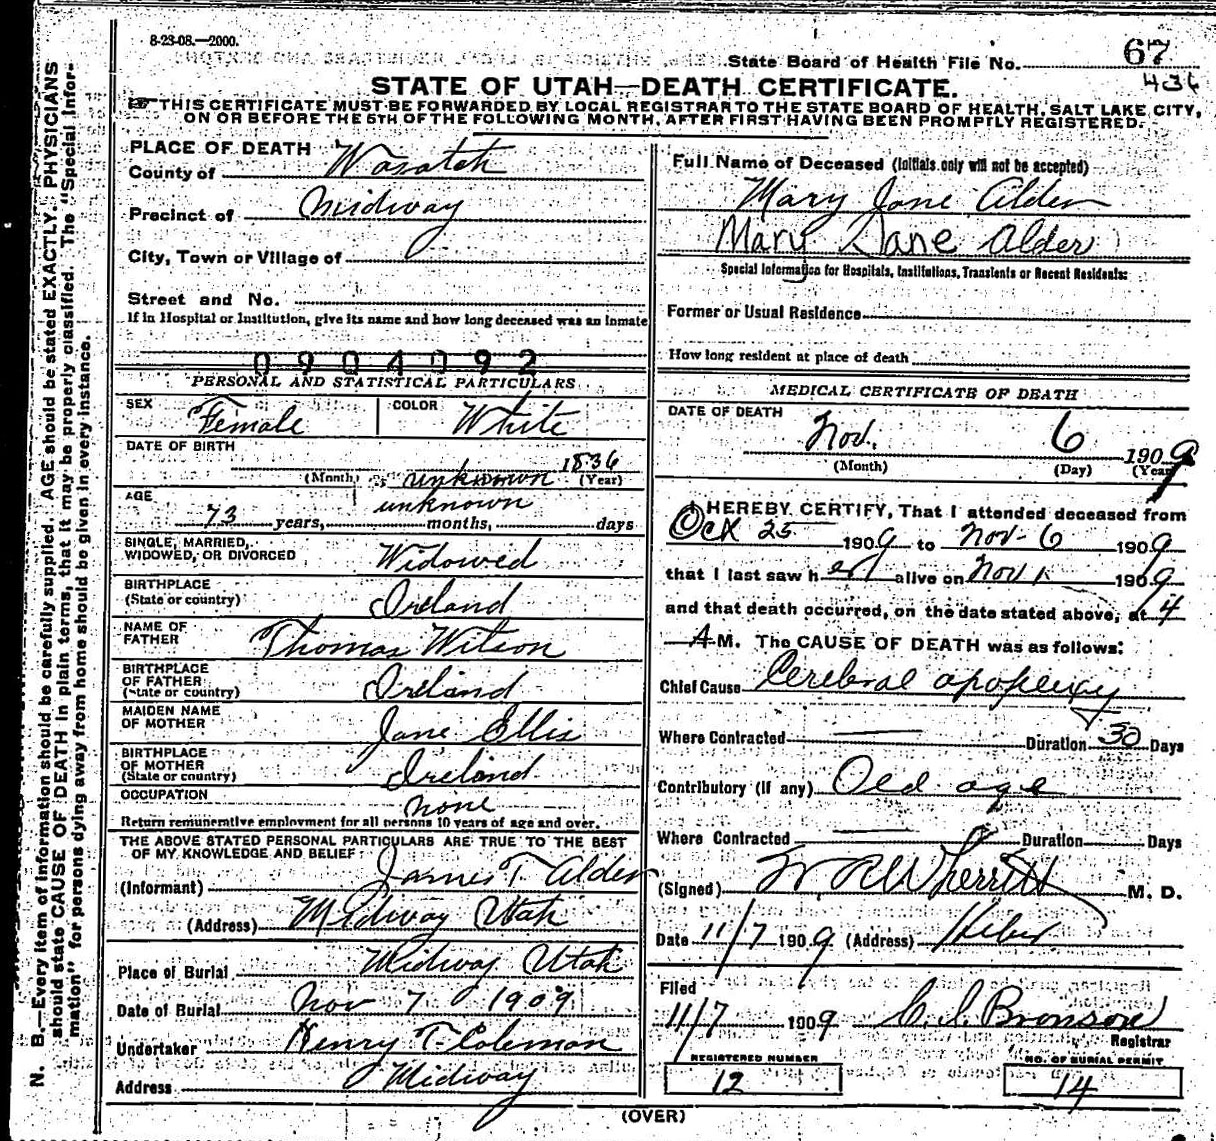 8-23-08.—2000.
State Board of Health File No. 67
436
STATE OF UTAH—DEATH CERTIFICATE.
☞ THIS CERTIFICATE MUST BE FORWARDED BY LOCAL REGISTRAR TO THE STATE BOARD OF HEALTH, SALT LAKE CITY,
ON OR BEFORE THE 5TH OF THE FOLLOWING MONTH, AFTER FIRST HAVING BEEN PROMPTLY REGISTERED.
N. B.—Every item of information should be carefully supplied. AGE should be stated EXACTLY. PHYSICIANS
should state CAUSE OF DEATH in plain terms, that it may be properly classified. The "Special Infor-
mation" for persons dying away from home should be given in every instance.
PLACE OF DEATH
County of Wasatch
Precinct of Midway
City, Town or Village of
Street and No.
If in Hospital or Institution, give its name and how long deceased was an inmate
0904092
PERSONAL AND STATISTICAL PARTICULARS
SEX Female COLOR White
DATE OF BIRTH
1836
(Month) unknown (Year)
AGE unknown
73 years, months, days
SINGLE, MARRIED,
WIDOWED, OR DIVORCED Widowed
BIRTHPLACE
(State or country) Ireland
NAME OF
FATHER Thomas Wilson
BIRTHPLACE
OF FATHER
(State or country) Ireland
MAIDEN NAME
OF MOTHER Jane Ellis
BIRTHPLACE
OF MOTHER
(State or country) Ireland
OCCUPATION none
Return remunerative employment for all persons 10 years of age and over.
THE ABOVE STATED PERSONAL PARTICULARS ARE TRUE TO THE BEST
OF MY KNOWLEDGE AND BELIEF
(Informant) James T. Alder
(Address) Midway Utah
Place of Burial Midway Utah
Date of Burial Nov 7 1909
Undertaker Henry T. Coleman
Address Midway
Full Name of Deceased (Initials only will not be accepted)
Mary Jane Alder
Mary Jane Alder
Special Information for Hospitals, Institutions, Transients or Recent Residents:
Former or Usual Residence
How long resident at place of death
MEDICAL CERTIFICATE OF DEATH
DATE OF DEATH
Nov. 6 1909
(Month) (Day) (Year)
I HEREBY CERTIFY, That I attended deceased from
Oct 25 1909 to Nov. 6 1909
that I last saw her alive on Nov 1 1909
and that death occurred, on the date stated above, at 4
A M. The CAUSE OF DEATH was as follows:
Chief Cause Cerebral apoplexy
Where Contracted Duration 30 Days
Contributory (If any) Old age
Where Contracted Duration Days
(Signed) W. R. Wherritt M. D.
Date 11/7 1909 (Address) Heber
Filed
11/7 1909 C. I. Bronson
Registrar
REGISTERED NUMBER
12
NO. OF BURIAL PERMIT
14
(OVER)